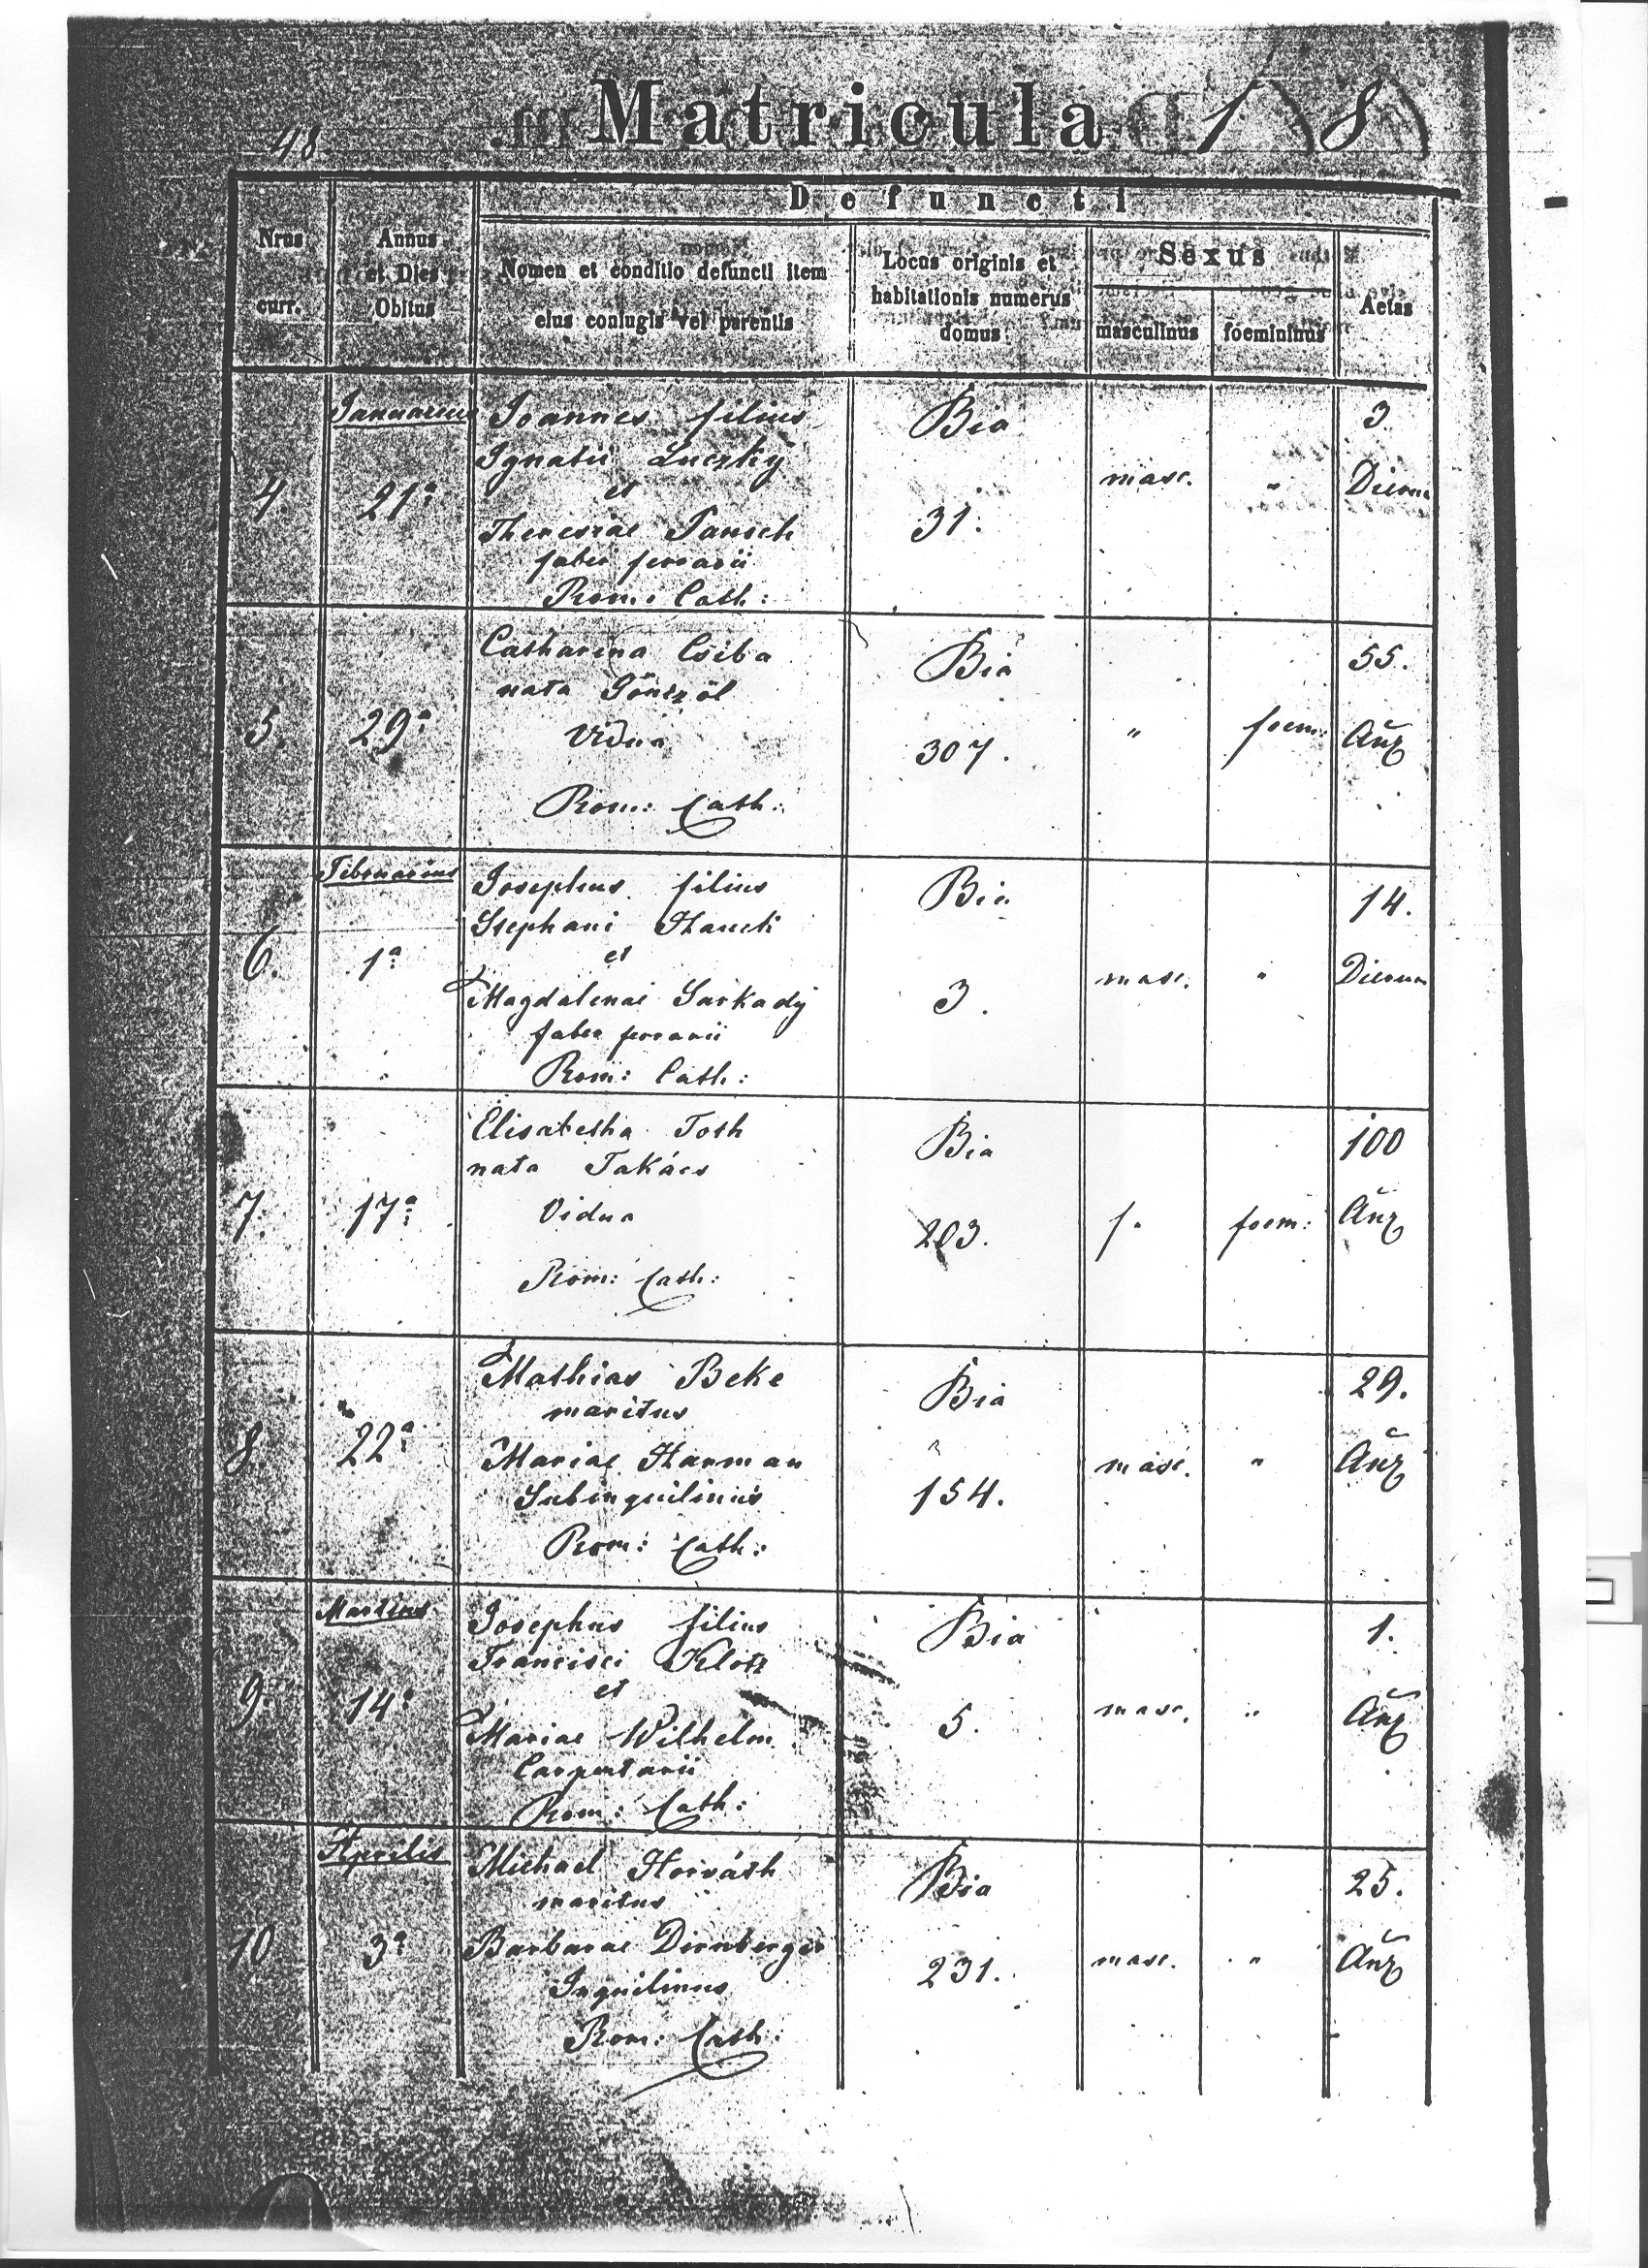 48
Matricula 18
Defuncti
Nrus curr.
Annus et Dies Obitus
Nomen et conditio defuncti item eius coniugis vel parentis
Locus originis et habitationis numerus domus
Sexus
masculinus
foemininus
Aetas
Januarius
4.
21ª
Joannes filius
Ignatii Luczky
et
Theresiae
faber ferrarii
Rom: Cath:
Bia
31.
masc.
"
3
Dierum
5.
29ª
Catharina Csiba
nata Gönczöl
Vidua
Rom: Cath:
Bia
307.
"
foem:
55.
Añz
Februarius
6.
1ª
Josephus filius
Stephani Hauck
et
Magdalenae Sarkady
faber ferrarii
Rom: Cath:
Bia
3.
masc.
"
14.
Dierum
7.
17ª
Elisabetha Toth
nata Takács
Vidua
Rom: Cath:
Bia
203.
f.
foem:
100
Añz
8.
22ª
Mathias Beke
maritus
Mariae Harman
Subinquilinus
Rom: Cath:
Bia
154.
masc.
"
29.
Añz
Martius
9.
14ª
Josephus filius
Francisci Klotz
et
Mariae Wilhelm
Carpentarii
Rom: Cath:
Bia
5.
masc.
"
1.
Añz
Aprilis
10
3ª
Michael Horváth
maritus
Barbarae Dirnberger
Inquilinus
Rom: Cath:
Bia
231.
masc.
"
25.
Añz